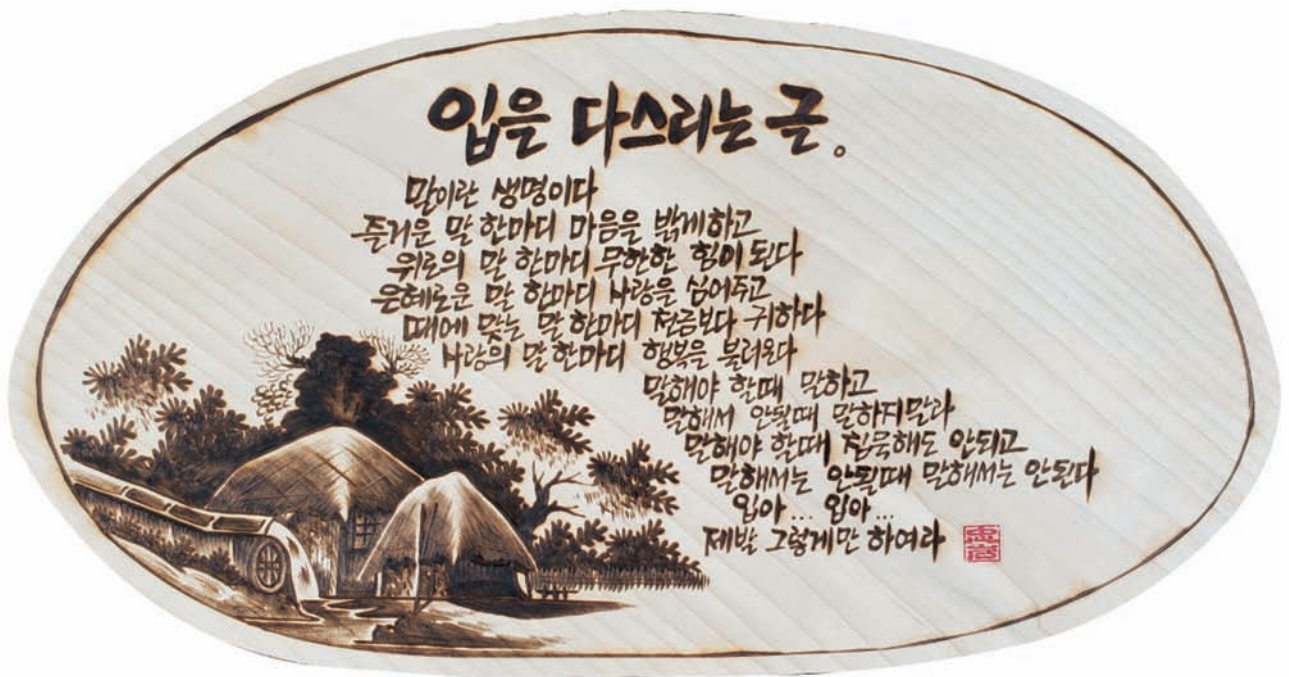 입을 다스리는 글。
말이란 생명이다
즐거운 말 한마디 마음을 밝게하고
위로의 말 한마디 무한한 힘이 된다
은혜로운 말 한마디 사랑을 심어주고
때에 맞는 말 한마디 천금보다 귀하다
사랑의 말 한마디 행복을 불러온다
말해야 할때 말하고
말해서 안될때 말하지말라
말해야 할때 침묵해도 안되고
말해서는 안될때 말해서는 안된다
입아... 입아...
제발 그렇게만 하여라